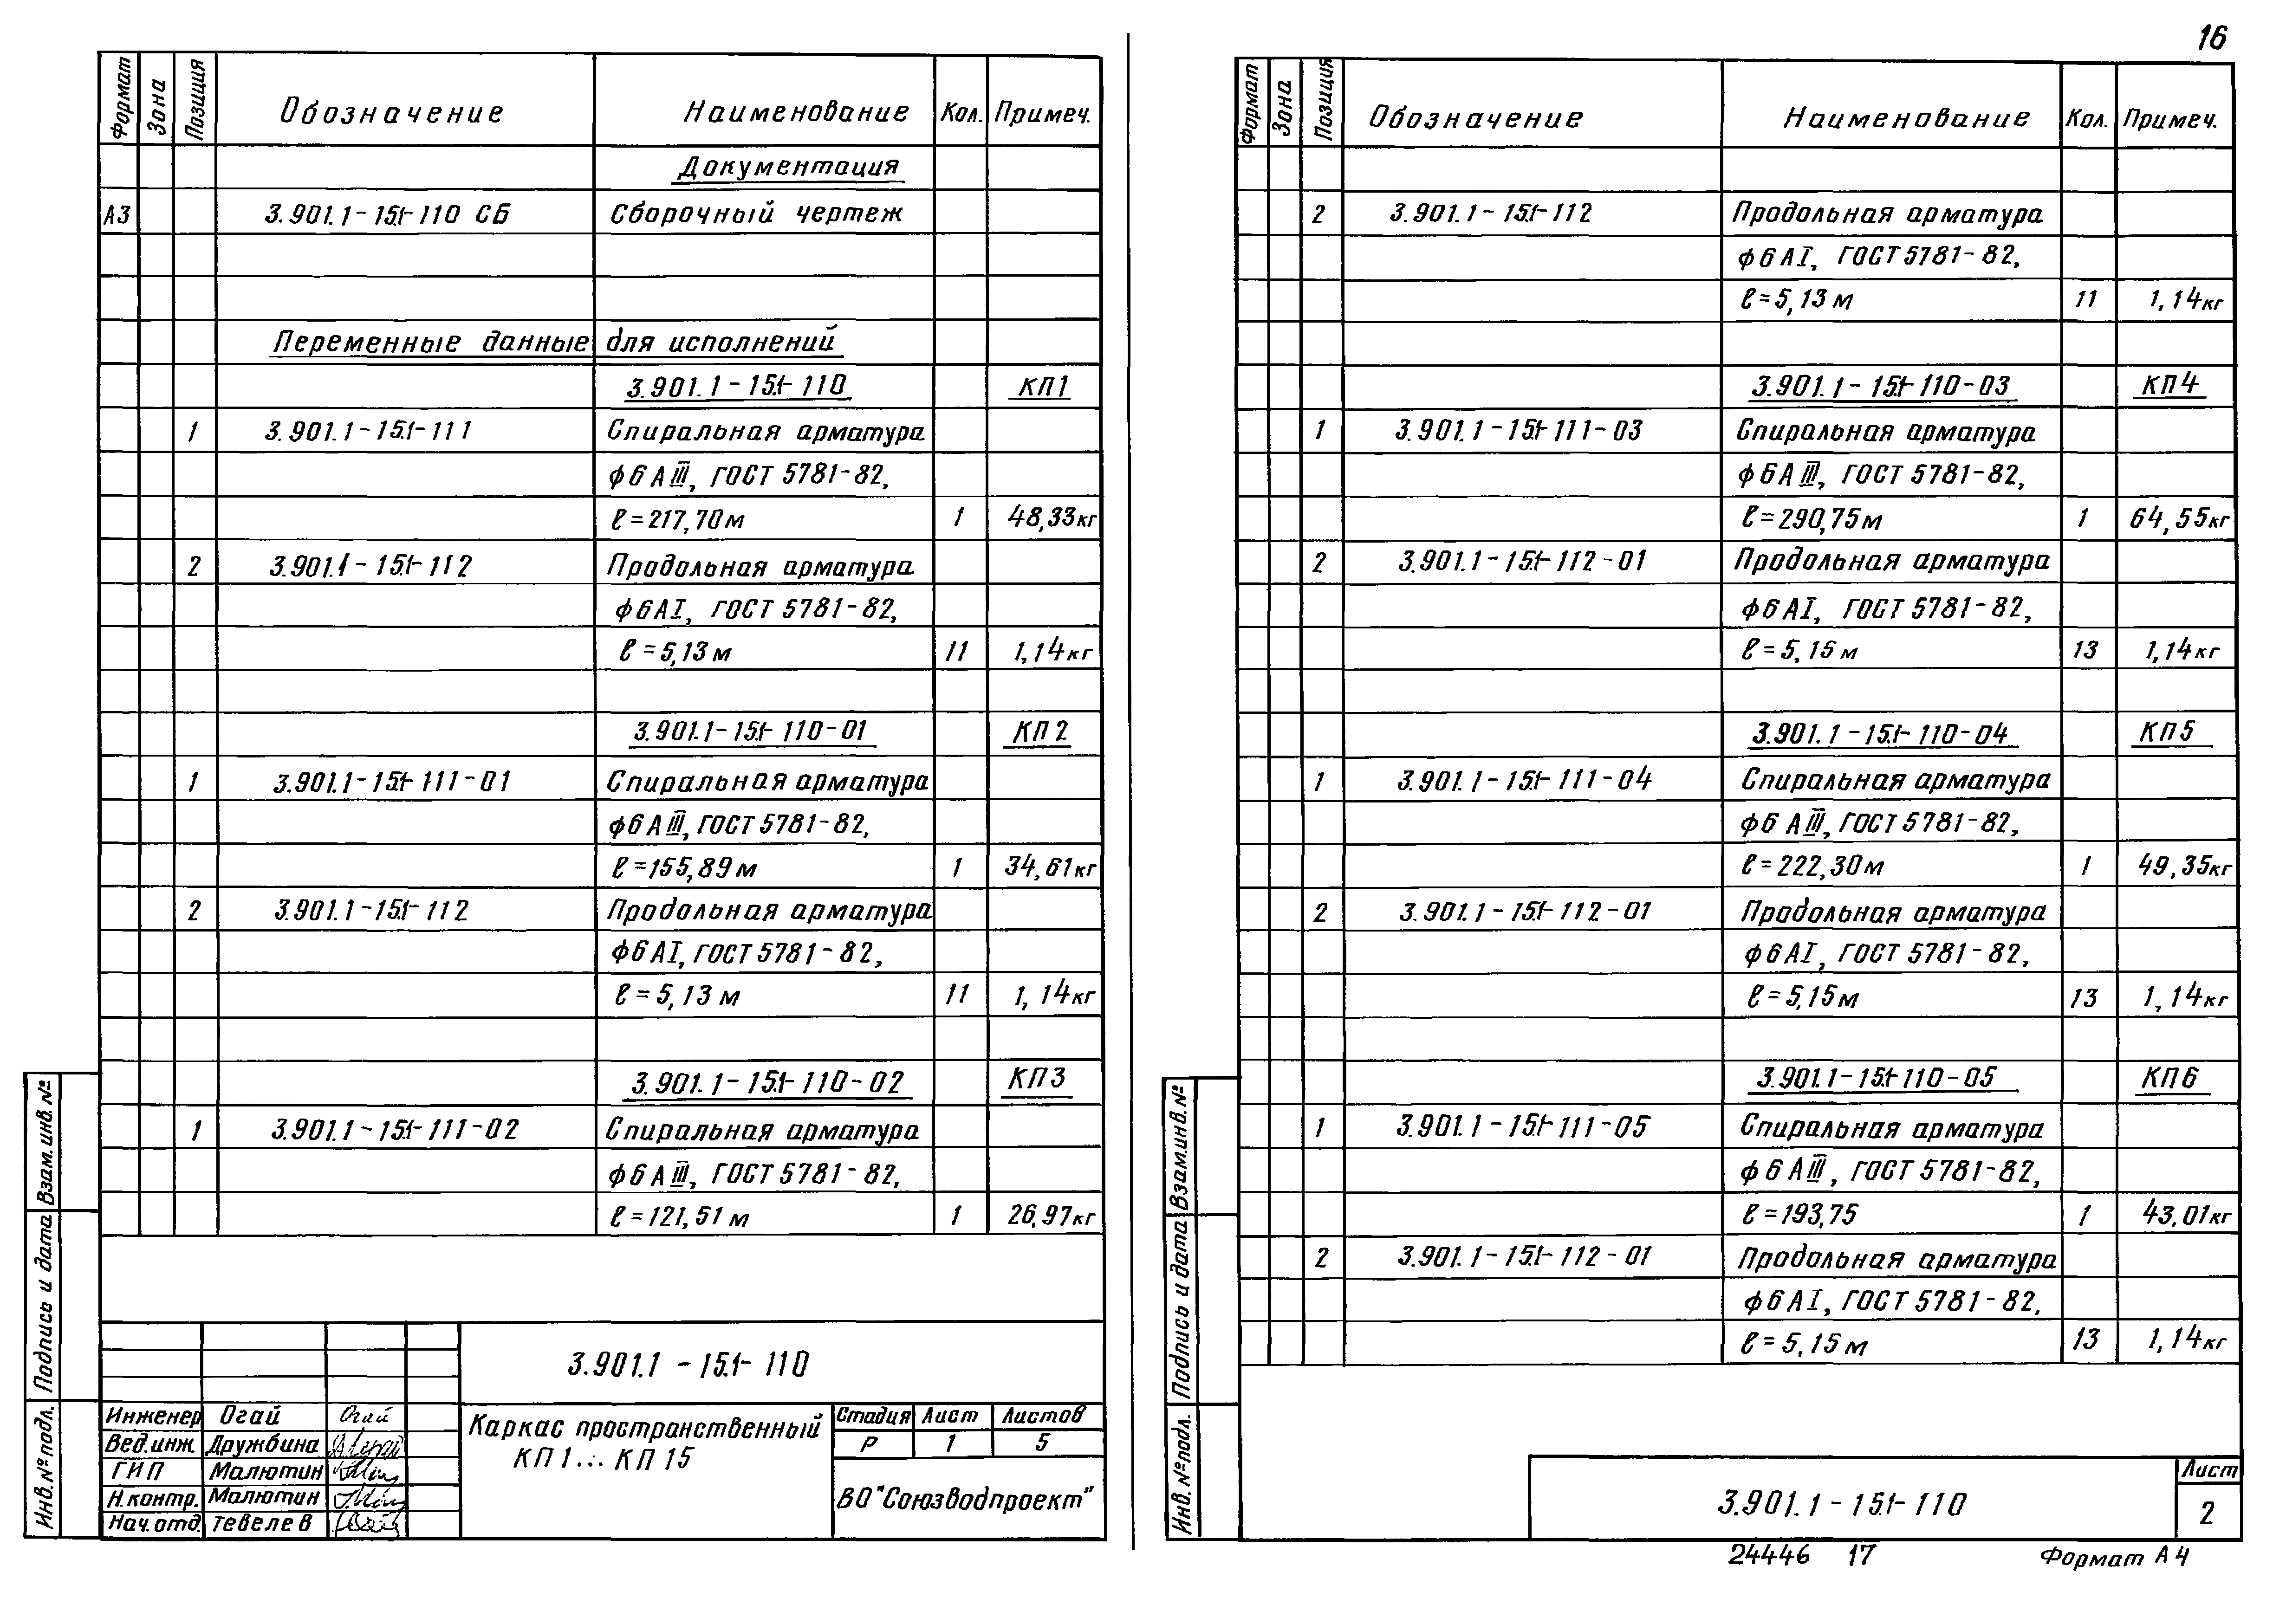 16
Формат Зона Позиция Обозначение Наименование Кол. Примеч.
Документация
А3 3.901.1-15.1-110 СБ Сборочный чертеж
Переменные данные для исполнений
3.901.1-15.1-110 КП1
1 3.901.1-15.1-111 Спиральная арматура
ф6АIII, ГОСТ 5781-82,
ℓ=217,70м 1 48,33кг
2 3.901.1-15.1-112 Продольная арматура
ф6АI, ГОСТ 5781-82,
ℓ=5,13м 11 1,14кг
3.901.1-15.1-110-01 КП2
1 3.901.1-15.1-111-01 Спиральная арматура
ф6АIII, ГОСТ 5781-82,
ℓ=155,89м 1 34,61кг
2 3.901.1-15.1-112 Продольная арматура
ф6АI, ГОСТ 5781-82,
ℓ=5,13м 11 1,14кг
3.901.1-15.1-110-02 КП3
1 3.901.1-15.1-111-02 Спиральная арматура
ф6АIII, ГОСТ 5781-82,
ℓ=121,51м 1 26,97кг
Взам.инв.№
Подпись и дата
Инв.№подл.
3.901.1-15.1-110
Инженер Огай Огай
Вед.инж. Дружбина
ГИП Малютин
Н.контр. Малютин
Нач.отд. Тевелев
Каркас пространственный
КП1...КП15
Стадия Лист Листов
Р 1 5
ВО "Союзводпроект"
Формат Зона Позиция Обозначение Наименование Кол. Примеч.
2 3.901.1-15.1-112 Продольная арматура
ф6АI, ГОСТ 5781-82,
ℓ=5,13м 11 1,14кг
3.901.1-15.1-110-03 КП4
1 3.901.1-15.1-111-03 Спиральная арматура
ф6АIII, ГОСТ 5781-82,
ℓ=290,75м 1 64,55кг
2 3.901.1-15.1-112-01 Продольная арматура
ф6АI, ГОСТ 5781-82,
ℓ=5,15м 13 1,14кг
3.901.1-15.1-110-04 КП5
1 3.901.1-15.1-111-04 Спиральная арматура
ф6АIII, ГОСТ 5781-82,
ℓ=222,30м 1 49,35кг
2 3.901.1-15.1-112-01 Продольная арматура
ф6АI, ГОСТ 5781-82,
ℓ=5,15м 13 1,14кг
3.901.1-15.1-110-05 КП6
1 3.901.1-15.1-111-05 Спиральная арматура
ф6АIII, ГОСТ 5781-82,
ℓ=193,75 1 43,01кг
2 3.901.1-15.1-112-01 Продольная арматура
ф6АI, ГОСТ 5781-82,
ℓ=5,15м 13 1,14кг
Взам.инв.№
Подпись и дата
Инв.№подл.
3.901.1-15.1-110
Лист
2
24446 17 Формат А4